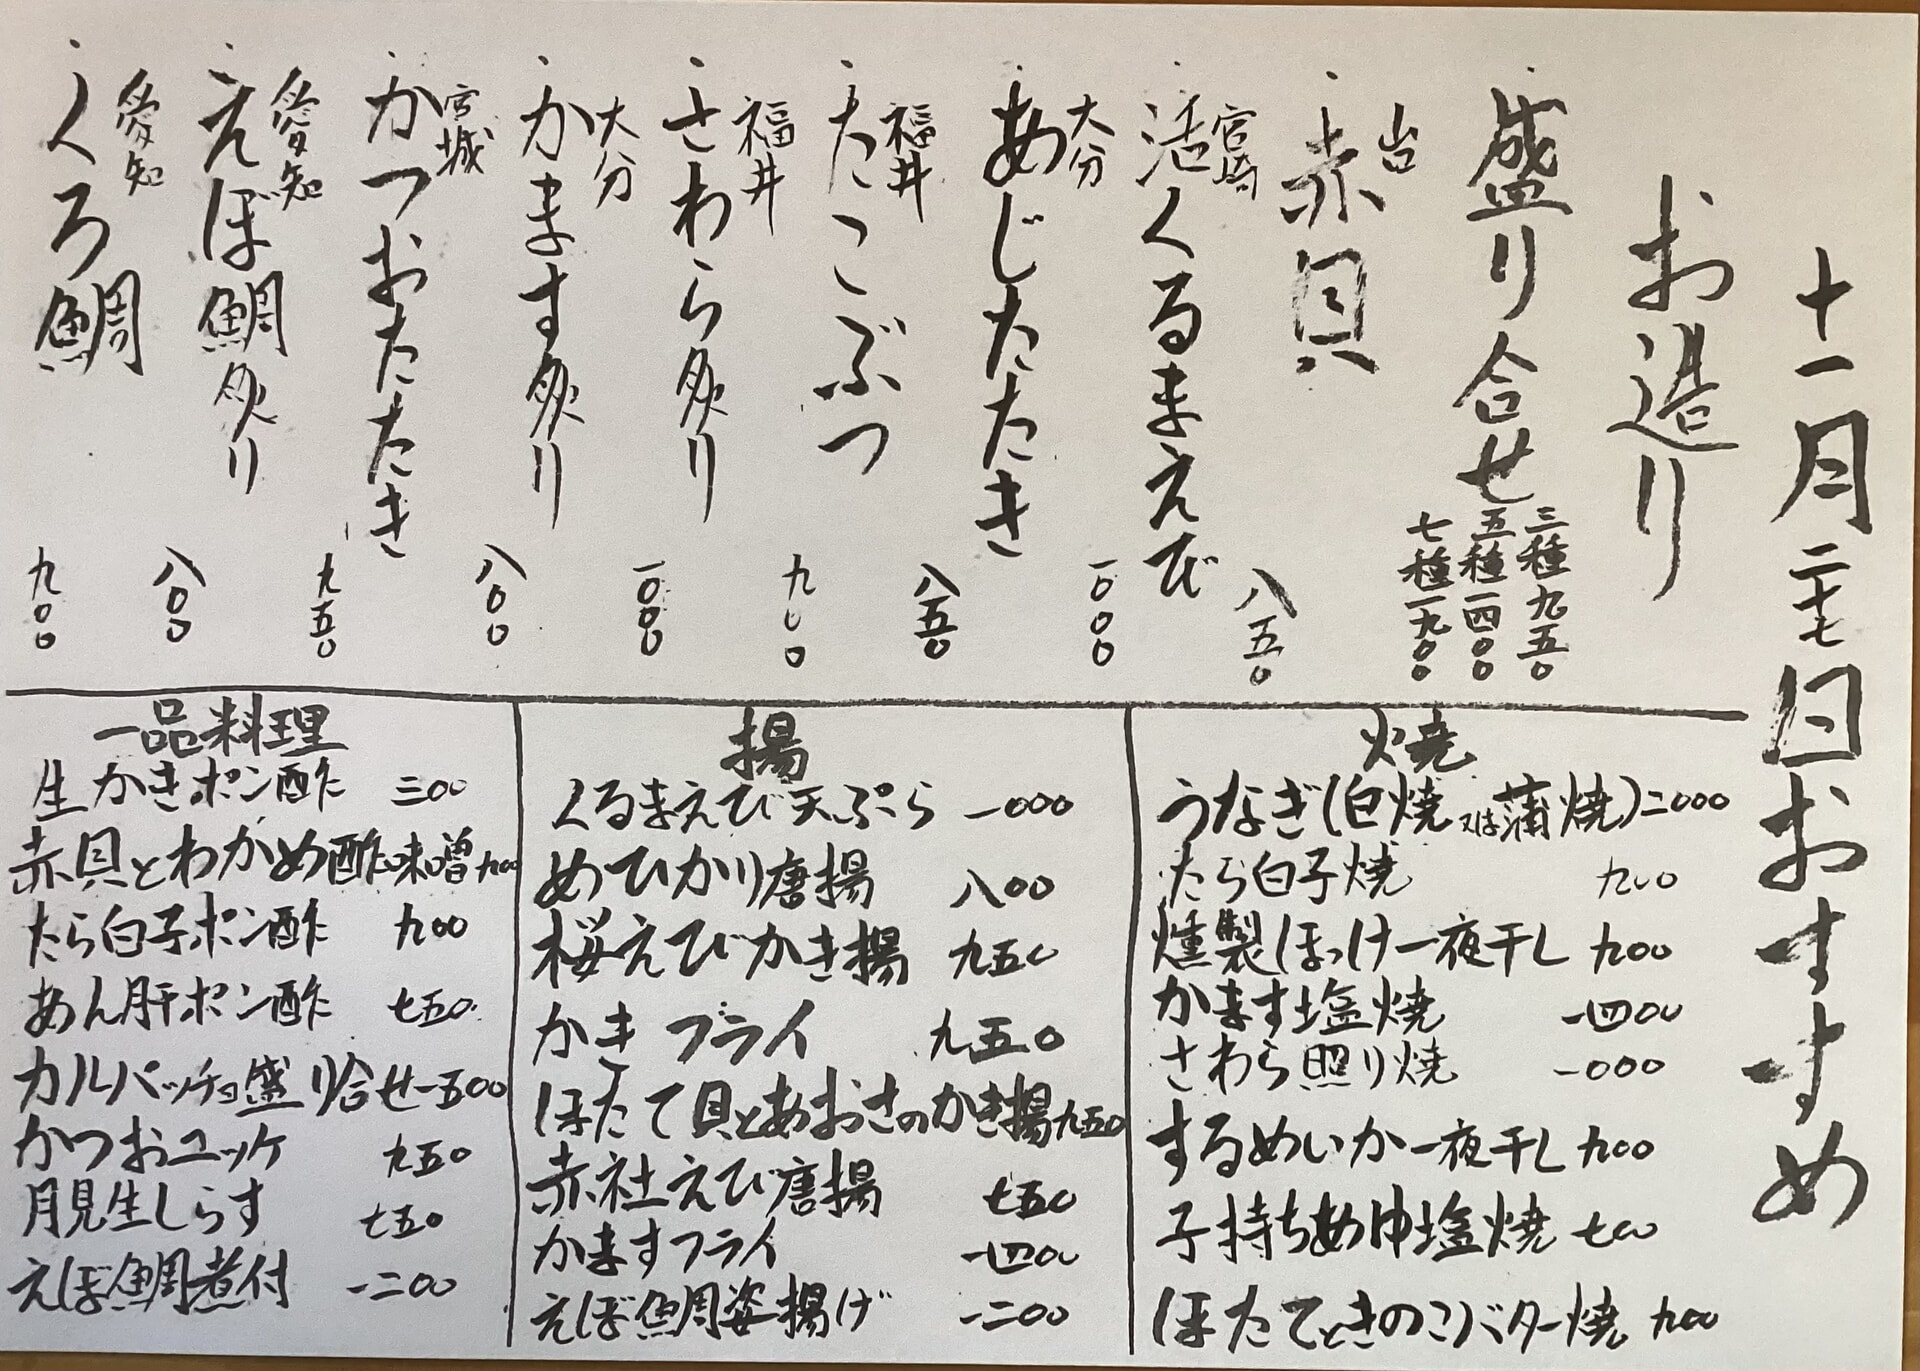 十一月二十七日おすすめ
お造り
盛り合せ
三種九五〇
五種一四〇〇
七種一九〇〇
赤貝 八五〇
宮崎
活くるまえび 一〇〇〇
大分
あじたたき 八五〇
福井
たこぶつ 九〇〇
福井
さわら炙り 一〇〇〇
大分
かます炙り 八〇〇
宮城
かつおたたき 九五〇
愛知
えぼ鯛炙り 八〇〇
愛知
くろ鯛 九〇〇
焼
うなぎ(白焼又は蒲焼)二〇〇〇
たら白子焼 九〇〇
燻製ほっけ一夜干し 九〇〇
かます塩焼 一四〇〇
さわら照り焼 一〇〇〇
するめいか一夜干し 九〇〇
子持ちあゆ塩焼 七〇〇
ほたてときのこバター焼 九〇〇
揚
くるまえび天ぷら 一〇〇〇
めひかり唐揚 八〇〇
桜えびかき揚 九五〇
かきフライ 九五〇
ほたて貝とあおさのかき揚九五〇
赤社えび唐揚 七五〇
かますフライ 一四〇〇
えぼ鯛姿揚げ 一二〇〇
一品料理
生かきポン酢 三〇〇
赤貝とわかめ酢味噌九〇〇
たら白子ポン酢 九〇〇
あん肝ポン酢 七五〇
カルパッチョ盛り合せ一五〇〇
かつおユッケ 九五〇
月見生しらす 七五〇
えぼ鯛煮付 一二〇〇